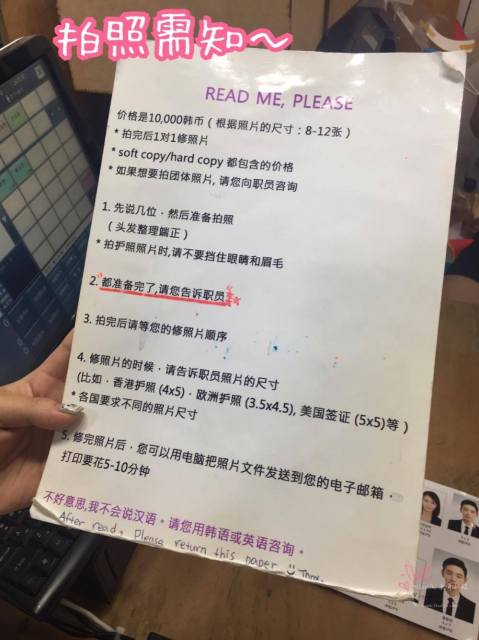 拍照需知～
READ ME, PLEASE
价格是10,000韩币（根据照片的尺寸：8-12张）
* 拍完后1对1修照片
* soft copy/hard copy 都包含的价格
* 如果想要拍团体照片, 请您向职员咨询
1. 先说几位，然后准备拍照
（头发整理端正）
* 拍护照照片时,请不要挡住眼睛和眉毛
2. 都准备完了,请您告诉职员
3. 拍完后请等您的修照片顺序
4. 修照片的时候，请告诉职员照片的尺寸
(比如，香港护照 (4x5)，欧洲护照 (3.5x4.5), 美国签证 (5x5)等 )
* 各国要求不同的照片尺寸
5. 修完照片后，您可以用电脑把照片文件发送到您的电子邮箱．
打印要花5-10分钟
不好意思,我不会说汉语。请您用韩语或英语咨询。
After read, Please return this paper Thnx.